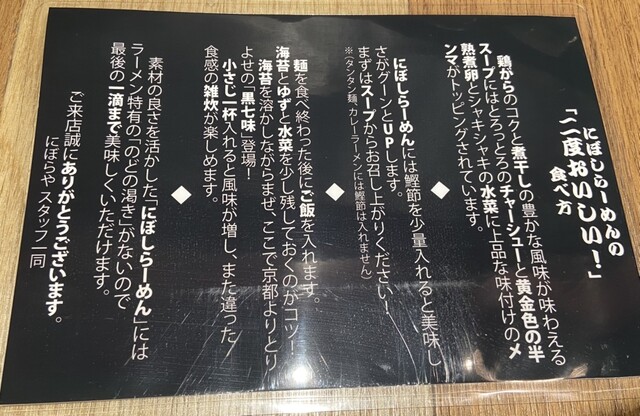 にぼしらーめんの
「二度おいしい！」
食べ方
鶏がらのコクと煮干しの豊かな風味が味わえる
スープにはとろっとろのチャーシューと黄金色の半
熟煮卵とシャキシャキの水菜に上品な味付けのメ
ンマがトッピングされています。
◆
にぼしらーめんには鰹節を少量入れると美味し
さがグーンとUPします。
まずはスープからお召し上がりください！
※（タンタン麺、カレーラーメンには鰹節は入れません）
◆
麺を食べ終わった後にご飯を入れます。
海苔とゆずと水菜を少し残しておくのがコツ！
海苔を溶かしながらまぜ、ここで京都よりとり
よせの「黒七味」登場！
小さじ一杯入れると風味が増し、また違った
食感の雑炊が楽しめます。
◆
素材の良さを活かした「にぼしらーめん」には
ラーメン特有の「のどの渇き」がないので
最後の一滴まで美味しくいただけます。
ご来店誠にありがとうございます。
にぼらや スタッフ一同